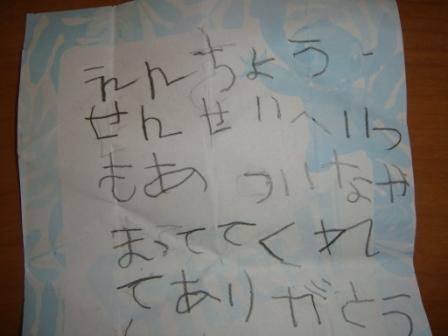 えんちょう
せんせいへいつ
もあついなか
まっててくれ
てありがとう